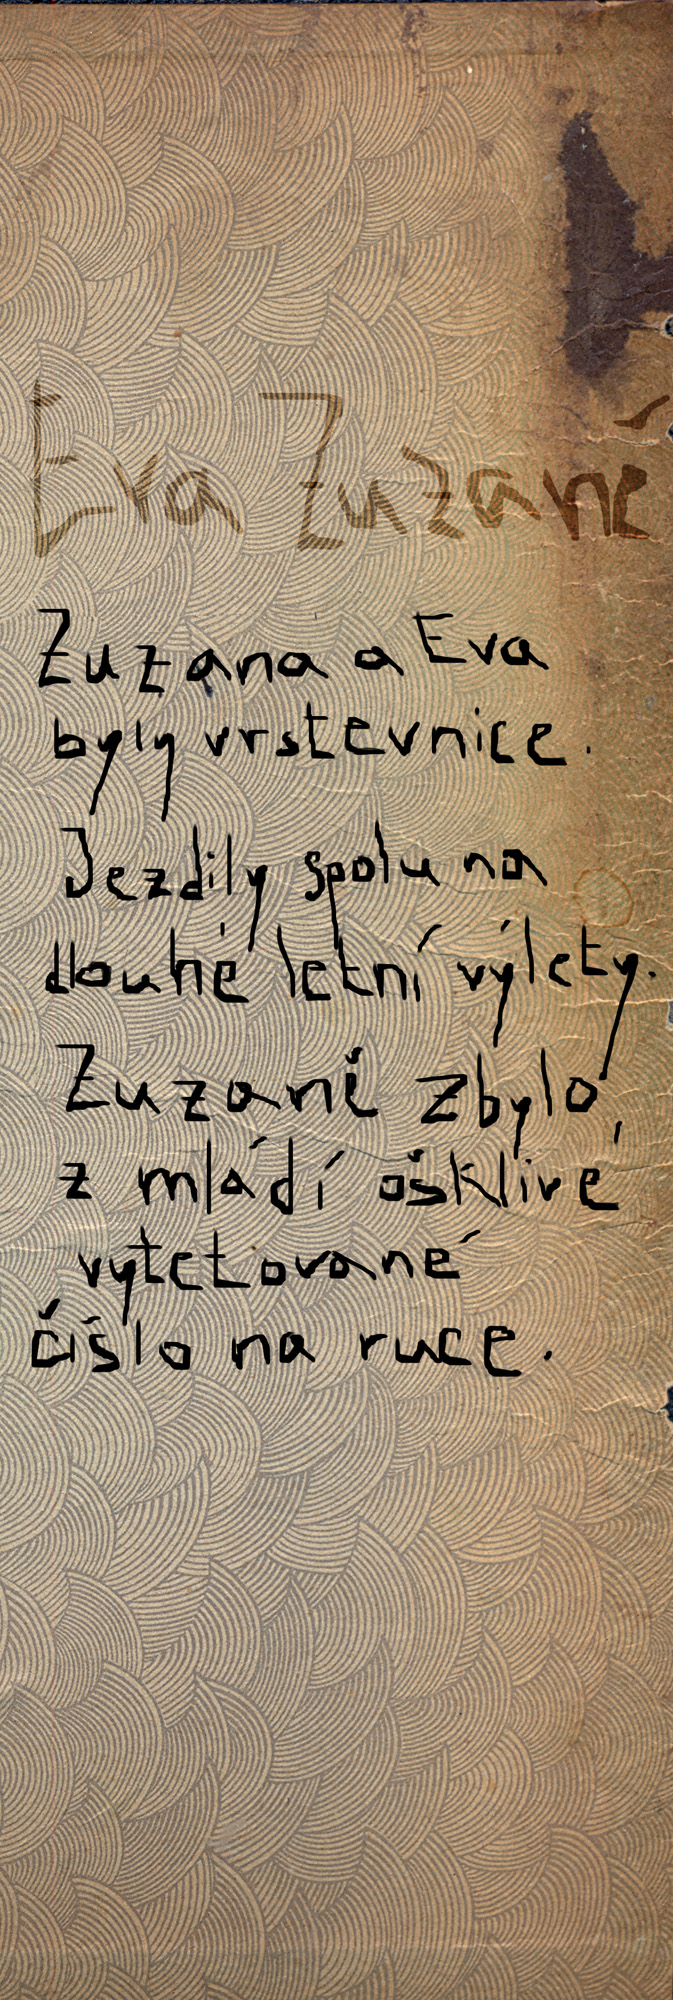 Eva Zuzaně
Zuzana a Eva
byly vrstevnice.
Jezdily spolu na
dlouhé letní výlety.
Zuzaně zbylo
z mládí ošklivé
vytetované
číslo na ruce.